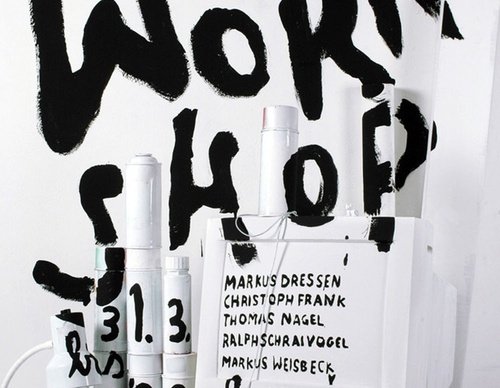 WORK
SHOP
31. 3.
bis
MARKUS DRESSEN
CHRISTOPH FRANK
THOMAS NAGEL
RALPH SCHRAIVOGEL
MARKUS WEISBECK